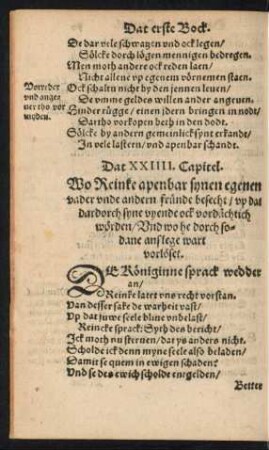 Dat erste Bock.
De dar vele schwatzen und ock legen/
Sölcke dorch lögen mennigen bedregen.
Men moth andere ock reden laen/
Nicht allene up egenem vörnemen staen.
Ock schaltu nicht by den jennen leuen/
De umme geldes willen ander angeuen.
Linder rügge/ einen jdern bringen in nodt/
Dartho vorkopen beth in den dodt.
Sölcke by andern gemeinlick synt erkandt/
In vele lastern/ und apenbar schandt.
Vorreder
und ange
uer tho vor
myden.
Dat XXIIII. Capitel.
Wo Reinke apenbar synen egenen
vader unde andern fründe besecht/ up dat
dardorch syne vyende ock vordächtich
wörden/ Und wo he dorch so-
dane anslege wart
vorlöset.
DE Königinne sprack wedder
an/
Reinke latet uns recht vorstan.
Van desser sake de warheit vast/
Up dat juwe seele blive unbelast/
Reincke sprack: Syth des bericht/
Ick moth nu steruen/ dat ys anders nicht.
Scholde ick denn myne seele also beladen/
Damit se quem in ewigen schaden?
Und se des ewich scholde entgelden/
Better